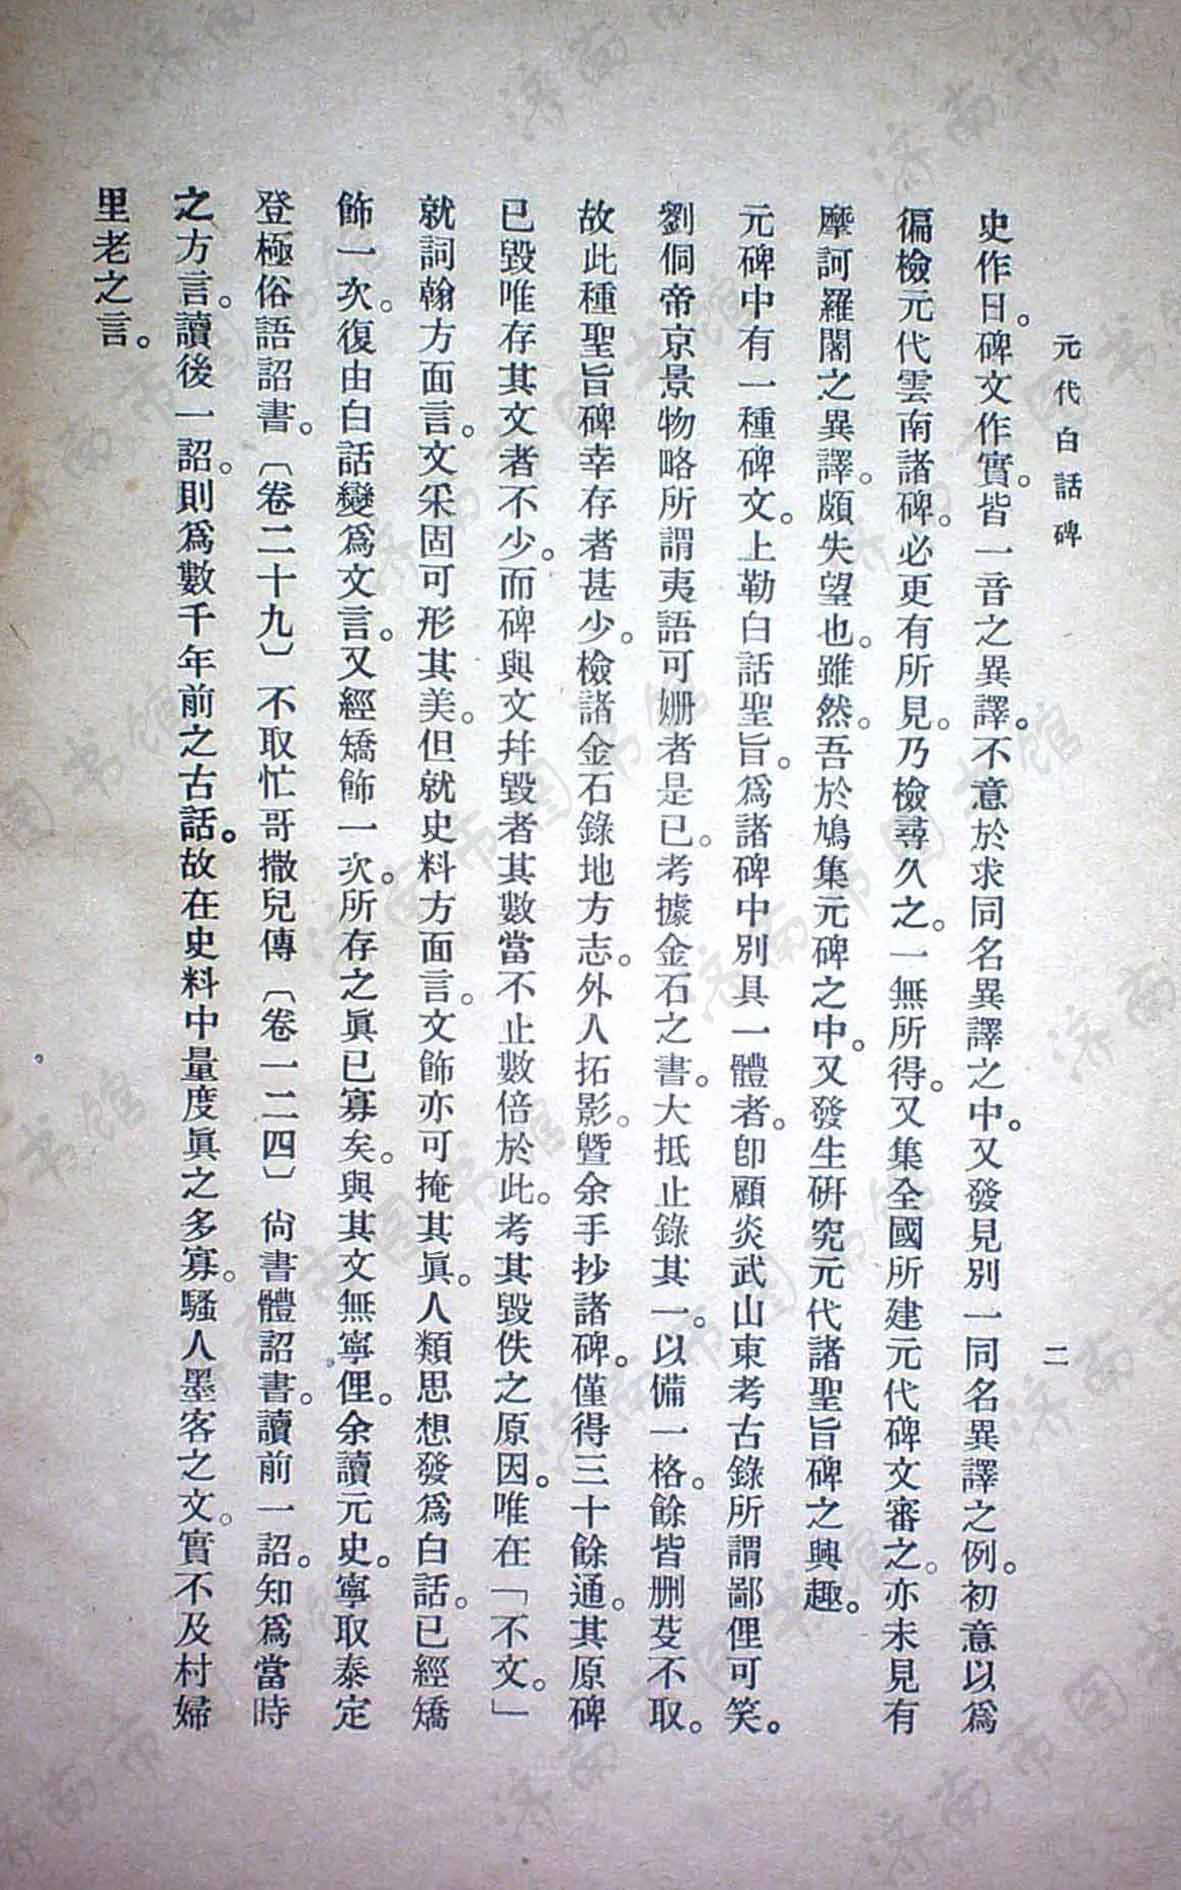 元代白話碑
二
史作日。碑文作實。皆一音之異譯。不意於求同名異譯之中。又發見別一同名異譯之例。初意以爲
徧檢元代雲南諸碑。必更有所見。乃檢尋久之。一無所得。又集全國所建元代碑文審之。亦未見有
摩訶羅闍之異譯。頗失望也。雖然。吾於鳩集元碑之中。又發生研究元代諸聖旨碑之興趣。
元碑中有一種碑文。上勒白話聖旨。爲諸碑中別具一體者。卽顧炎武山東考古錄所謂鄙俚可笑。
劉侗帝京景物略所謂夷語可姍者是已。考據金石之書。大抵止錄其一。以備一格。餘皆删芟不取。
故此種聖旨碑幸存者甚少。檢諸金石錄地方志。外人拓影。曁余手抄諸碑。僅得三十餘通。其原碑
已毀唯存其文者不少。而碑與文幷毀者其數當不止數倍於此。考其毀佚之原因。唯在「不文。」
就詞翰方面言。文采固可形其美。但就史料方面言。文飾亦可掩其眞。人類思想發爲白話。已經矯
飾一次。復由白話變爲文言。又經矯飾一次。所存之眞已寡矣。與其文無寧俚。余讀元史。寧取泰定
登極俗語詔書。〔卷二十九〕不取忙哥撒兒傳〔卷一二四〕尙書體詔書。讀前一詔。知爲當時
之方言。讀後一詔。則爲數千年前之古話。故在史料中量度眞之多寡。騷人墨客之文。實不及村婦
里老之言。
济南市图书馆